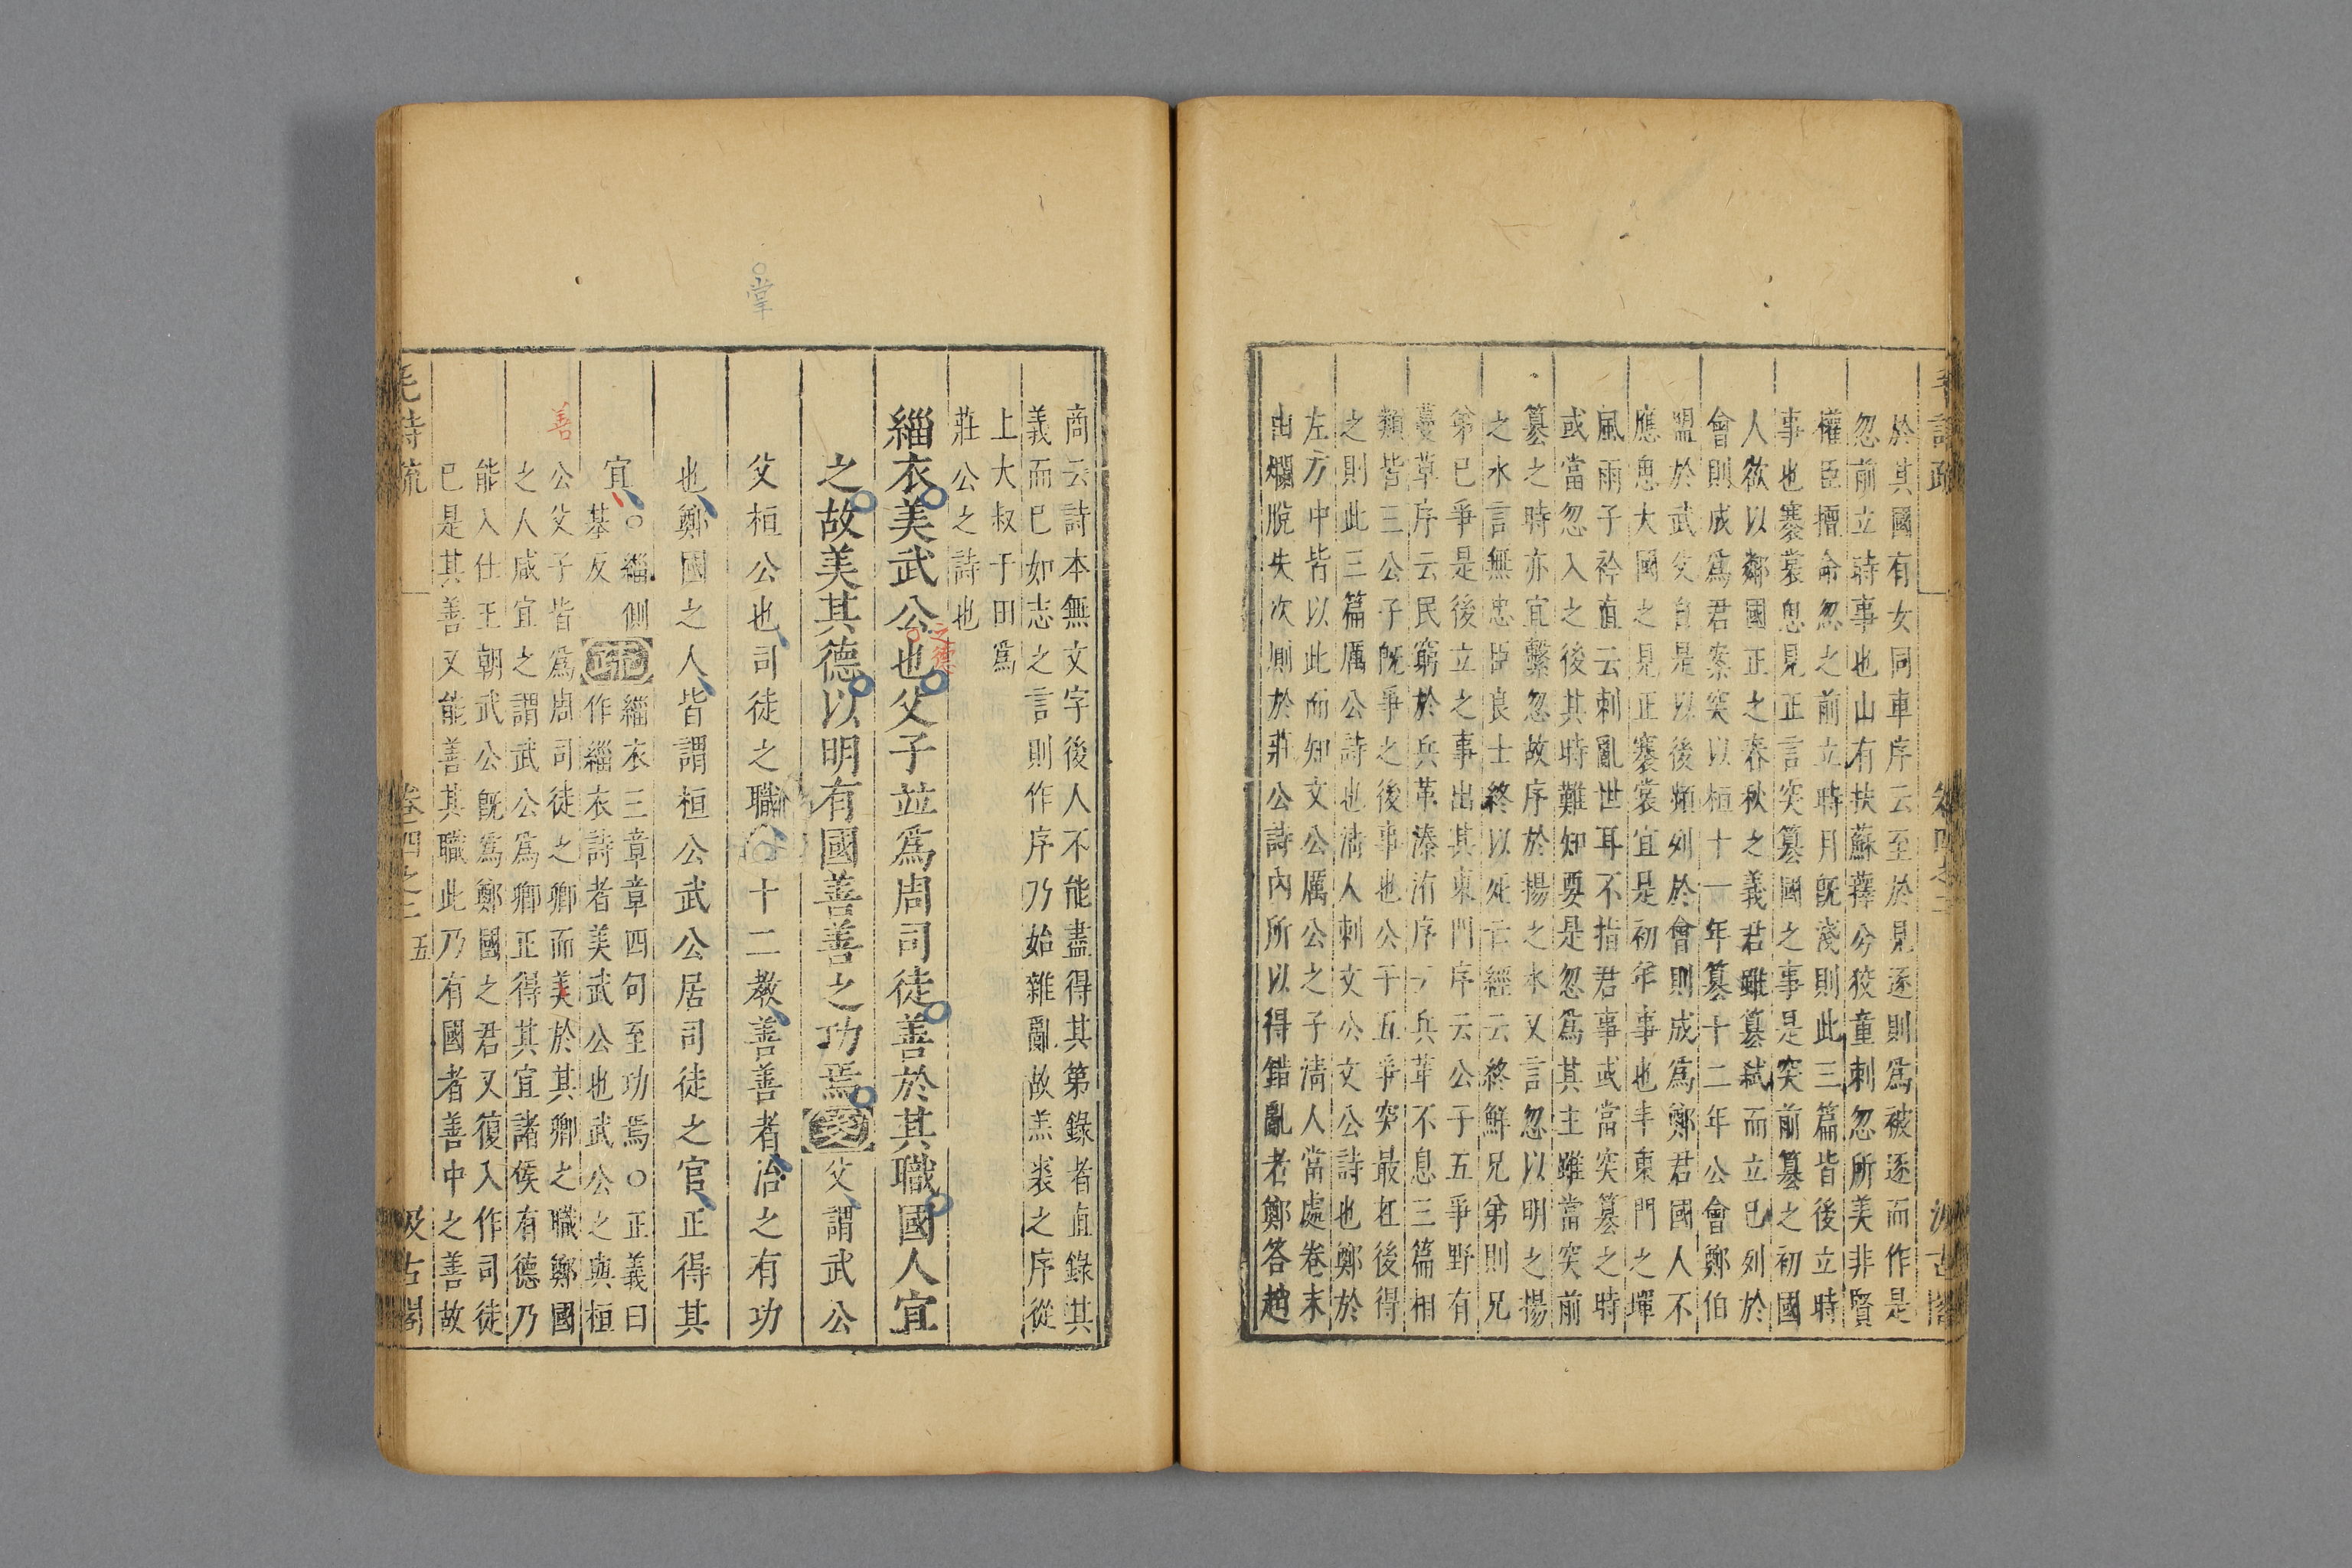 於其國有女同車序云至於見逐則爲被逐而作是
忽前立時事也山有扶蘇蘀兮狡童刺忽所美非賢
權臣擅命忽之前立時月旣淺則此三篇皆後立時
事也褰裳思見正言突篡國之事是突前篡之初國
人欲以鄰國正之春秋之義君雖篡弑而立巳列於
會則成爲君案突以桓十一年篡十二年公會鄭伯
盟於武父自是以後頻列於會則成爲鄭君國人不
應思大國之見正褰裳宜是初年事也丰東門之墠
風雨子衿直云刺亂世耳不指君事或當突篡之時
或當忽入之後其時難知要是忽爲其主雖當突前
篡之時亦宜繫忽故序於揚之水又言忽以明之揚
之水言無忠臣良士終以死云經云終鮮兄弟則兄
弟已爭是後立之事出其東門序云公子五爭野有
蔓草序云民窮於兵革溱洧序云兵革不息三篇相
類皆三公子旣爭之後事也公子五爭突最在後得
之則此三篇厲公詩也淸人刺文公文公詩也鄭於
左方中皆以此而知文公厲公之子淸人當處卷末
由爛脫失次則於莊公詩內所以得錯亂者鄭答趙
商云詩本無文字後人不能盡得其第錄者直錄其
義而巳如志之言則作序乃始雜亂故羔裘之序從
上大叔于田爲
莊公之詩也
緇衣美武公也父子並爲周司徒善於其職國人宜
之德
之故美其德以明有國善善之功焉箋父謂武公
父桓公也司徒之職
十二教善善者治之有功
掌
也鄭國之人皆謂桓公武公居司徒之官正得其
宜○緇側
基反
疏緇衣三章章四句至功焉○正義曰
作緇衣詩者美武公也武公之與桓
公父子皆爲周司徒之卿而美於其卿之職鄭國
善
之人咸宜之謂武公爲卿正得其宜諸侯有德乃
能入仕王朝武公旣爲鄭國之君又復入作司徒
巳是其善又能善其職此乃有國者善中之善故
毛詩疏 卷四之二 五 汲古閣